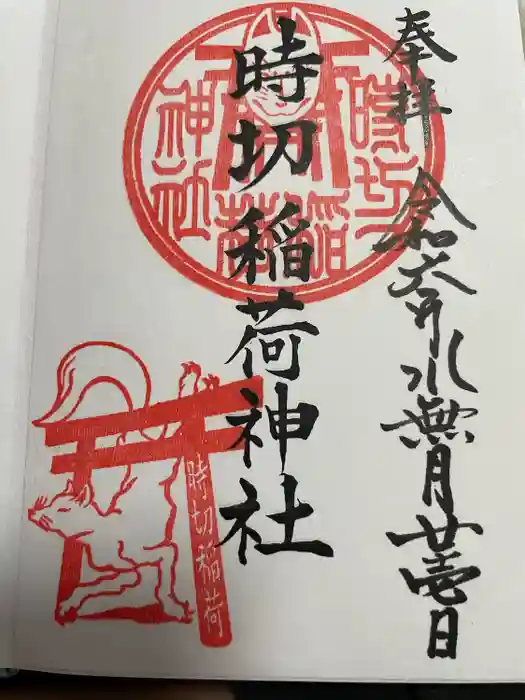 奉拝
令和六年水無月廿壱日
時切稲荷神社
時切稲荷神社
時切稲荷